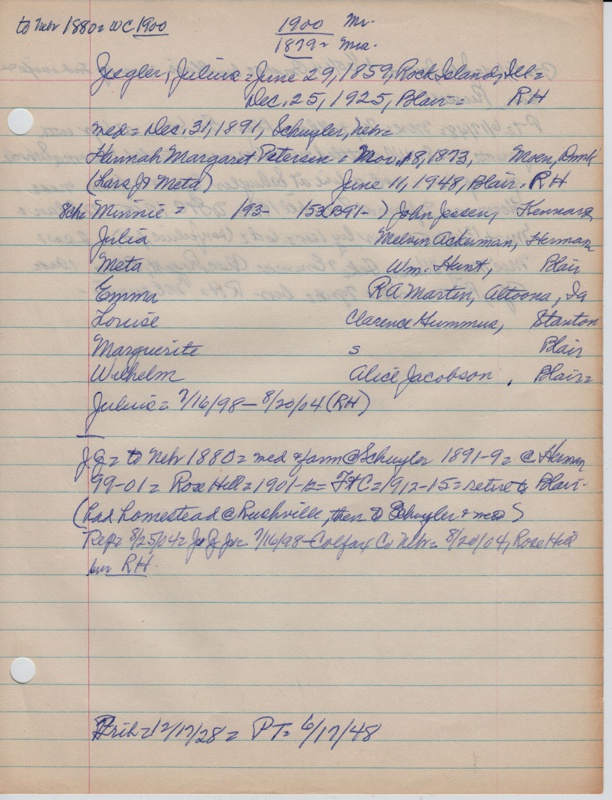 to Nebr 1880= WC 1900
1900 Mr.
1879= Mrs.
Ziegler, Julius = June 29, 1859, Rock Island, Ill =
Dec. 25, 1925, Blair = RH
med = Dec. 31, 1891, Schuyler, Nebr =
Hannah Margaret Petersen = Nov. 18, 1873, Moen, Dmk
(Lars J & Meta) June 11, 1948, Blair. RH
8ch= Minnie = /93- 153(B91- ) John Jessen, Kennard
Julia Melvin Ackerman, Herman
Meta Wm. Hunt, Blair
Emma R A Martin, Altoona, Ia
Louise Clarence Gummus, Stanton
Marguerite s Blair
Wilhelm Alice Jacobson, Blair=
Julius = 7/16/98 - 8/20/04 (RH)
J.G. = to Nebr 1880 = med & farm @ Schuyler 1891-9 = @ Herman
99-01 = Rose Hill = 1901-12 = FtC = 1912-15 = retire to Blair-
(had homestead @ Rushville, then to Schuyler & med)
Rep = 8/25/04 = Ju Z Jr = 7/16/98 - Colfax Co Nebr = 8/20/04, Rose Hill
bur RH.
= 12/17/28 = PT = 6/17/48